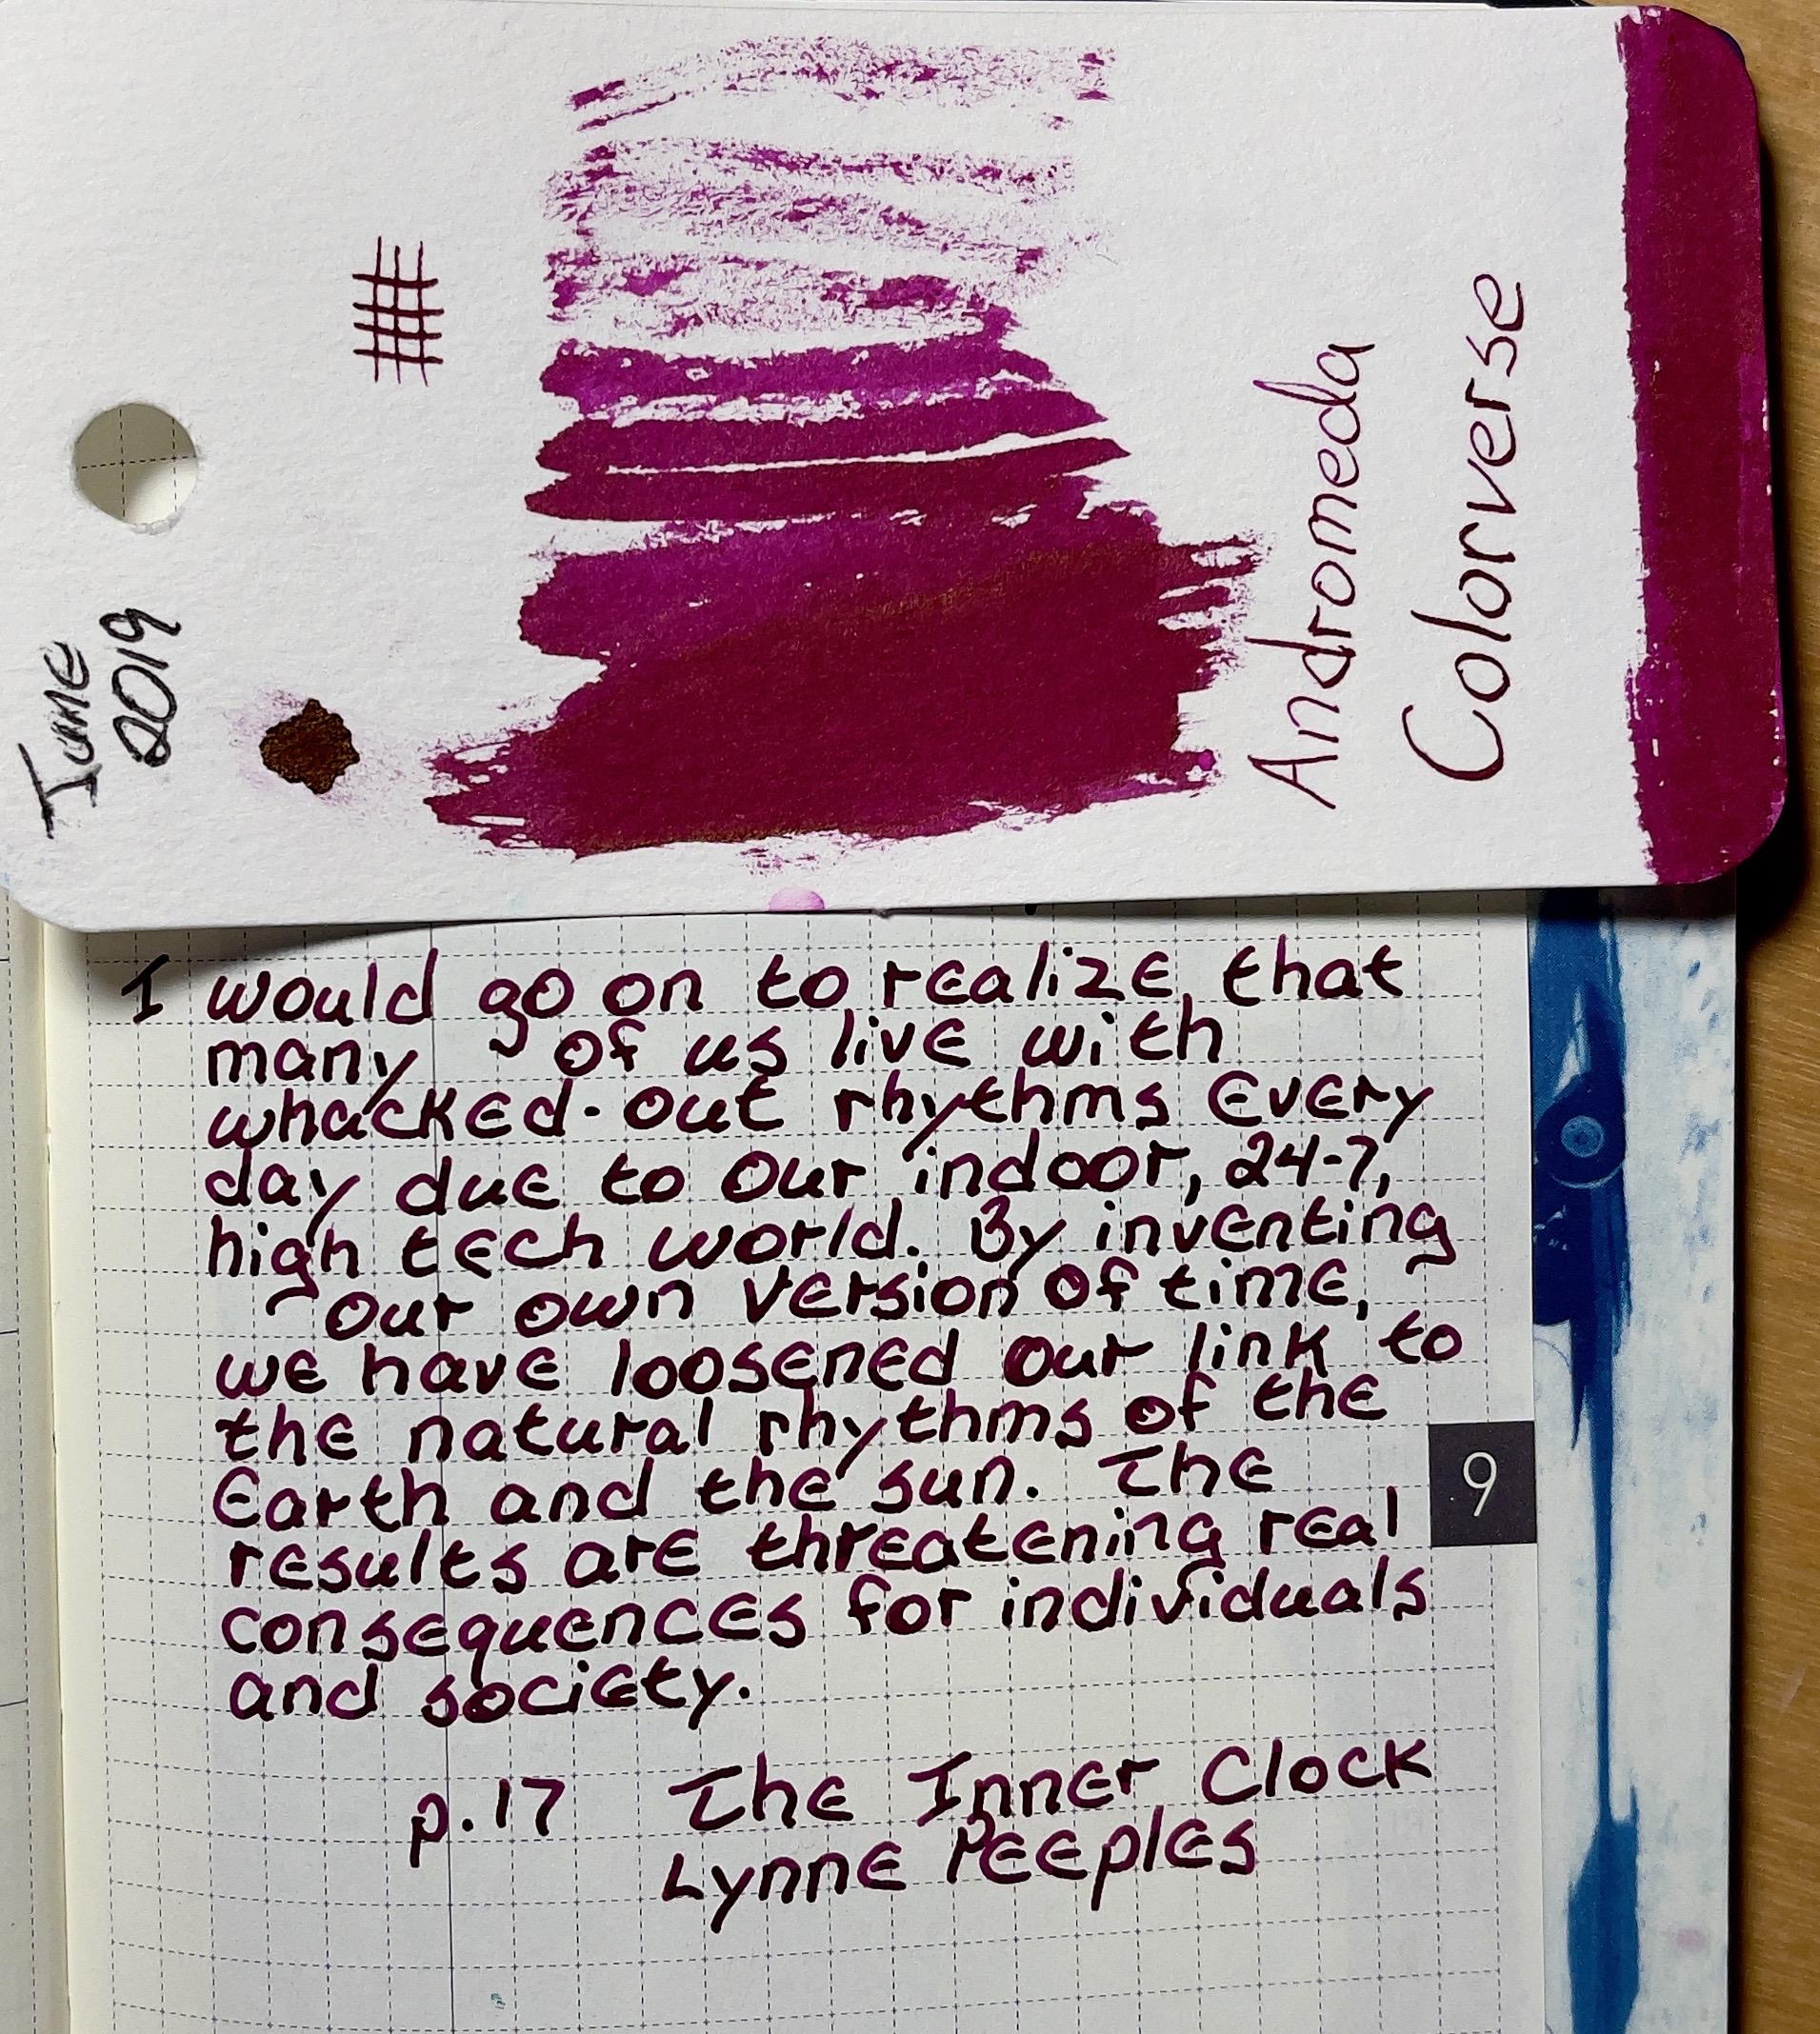 June
2019
Andromeda
Colorverse
I would go on to realize, that
many of us live with
whacked-out rhythms every
day due to our indoor, 24-7,
high tech world. By inventing
our own version of time,
we have loosened our link to
the natural rhythms of the
Earth and the sun. The
results are threatening real
consequences for individuals
and society.
9
p.17 The Inner Clock
Lynne Peeples